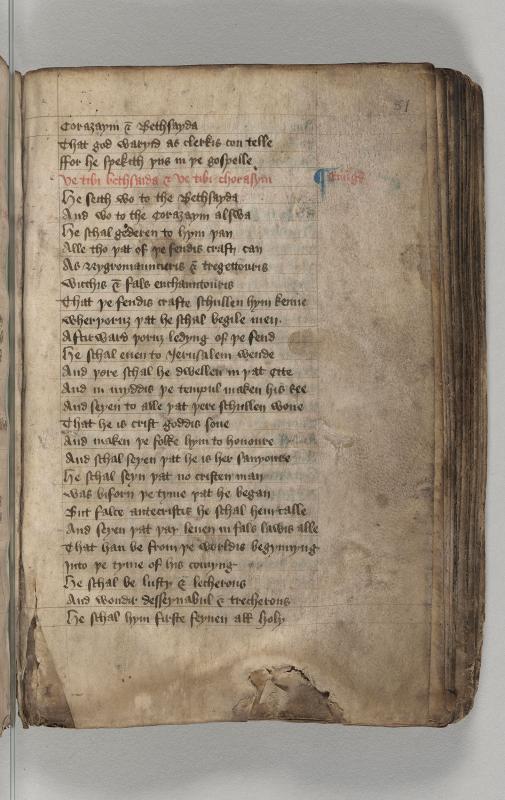 51
Corazaym & Bethsayda
That god waryd as clerkis con telle
ffor he spekith þus in þe gospelle
Ve tibi bethsaida & ve tibi chorasym
He seith wo to the Bethsayda
And wo to the Corazaym alswa
He schal gederen to hym þan
Alle tho þat of þe fendis craft can
As nygromancieris & tregettouris
Wicchis & fals enchauntouris
That þe fendis crafte schullen hym kenne
Wherþoruz þat he schal begile men
Aftirward þoruz ledyng of þe fend
He schal euen to Jerusalem wende
And þore schal he dwellen in þat Cite
And in myddis þe tempul maken his see
And seyen to alle þat þere schullen wone
That he is crist goddis sone
And maken þe folke hym to honoure
And schal seyen þat he is her sauyoure
He schal seyn þat no cristen man
Was biforn þe tyme þat he began
But false antecristis he schal hem calle
And seyen þat þay leuen in fals lawis alle
That han be from þe worldis begynnyng
Into þe tyme of his comyng
He schal be lusty & lecherous
And wondir desseyuabul & trecherous
He schal hym firste feynen all holy